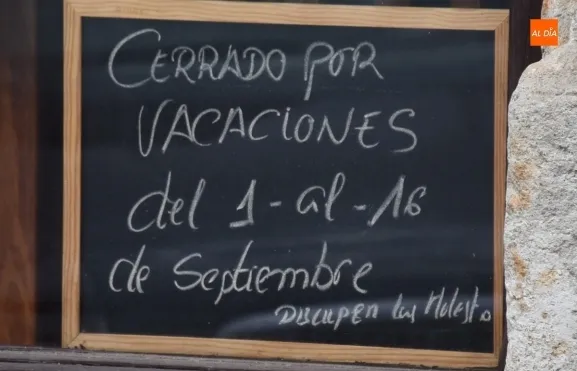 AL DÍA
CERRADO POR
VACACIONES
del 1-al-16
de Septiembre
DISCULPEN las Molest